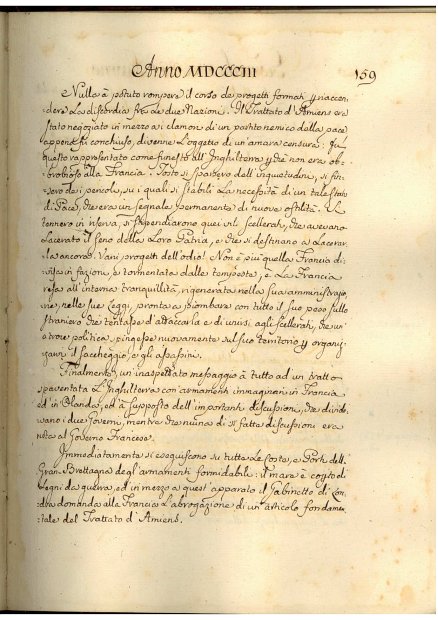 Anno MDCCCIII
159
Nulla à potuto rompere il corso de progetti formati p riaccen=
dere La discordia fra le due Nazioni. Il Trattato d'Amiens era
stato negoziato in mezzo a i clamori di un partito nemico della pace
appena fu conchiuso, divenne L'oggetto di un'amara censura: Fu
questo rappresentato come funesto all'Inghilterra p che non era ob=
brobrioso alla Francia. Tosto si sparsero dell'inquietudini, si fin=
sero de i pericoli, su i quali si stabilì La necessità di un tale stato
di Pace, che era un segnale permanente di nuove ostilità. Si
tennero in riserva, si stipendiarono quei vili scellerati, che avevano
Lacerato il seno della Loro Patria, e che si destinano a Lacerar=
la ancora. Vani progetti dell'odio! Non è più quella Francia di=
visa in fazioni, e tormentata dalle tempeste, è La Francia
resa all'interna tranquillità, rigenerata nella sua amministrazio
ne, nelle sue Leggi, pronta a piombare con tutto il suo peso sullo
straniero che tentasse d'attaccarla e di unirsi agli scellerati, che un'
atroce politica spingesse nuovamente sul suo territorio p organiz=
zarvi il saccheggio, e gli assassini.
Finalmente un inaspettato messaggio à tutto ad un tratto
spaventata L'Inghilterra con armamenti immaginari in Francia
ed in Olanda, ed à supposta dell'importanti discussioni, che divide
=vano i due Governi, mentre che niuna di sì fatte discussioni era
nota al Governo Francese.
Immediatamente si eseguiscono su tutte Le Coste, e Porti della
Gran Brettagna degl'armamenti formidabili: il mare è coperto di
Legni da guerra, ed in mezzo a quest'apparato il Gabinetto di Lon=
dra domanda alla Francia L'abrogazione di un articolo fondamen
=tale del Trattato d'Amiens.